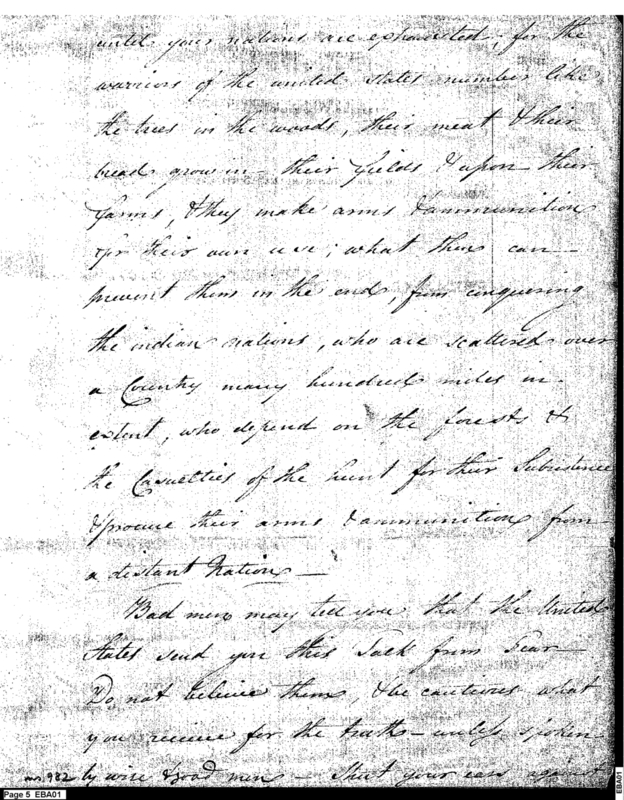 until your nations are exhausted, for the
warriors of the united states number like
the trees in the woods, their meat & their
bread grow in their fields & upon their
farms, & they make arms & ammunition
for their own use; what then can
prevent them in the end, from conquering
the indian nations, who are scattered over
a Country many hundred miles in
extent, who depend on the forests &
the Casualties of the hunt for their Subsistence
& procure their arms & ammunition from
a distant Nation —
Bad men may tell you that the United
States send you this Talk from Fear
Do not believe them, & be cautious what
you receive for the truth - unless spoken
by wise & good men - Shut your ears against
982
Page 5 EBA01
EBA01